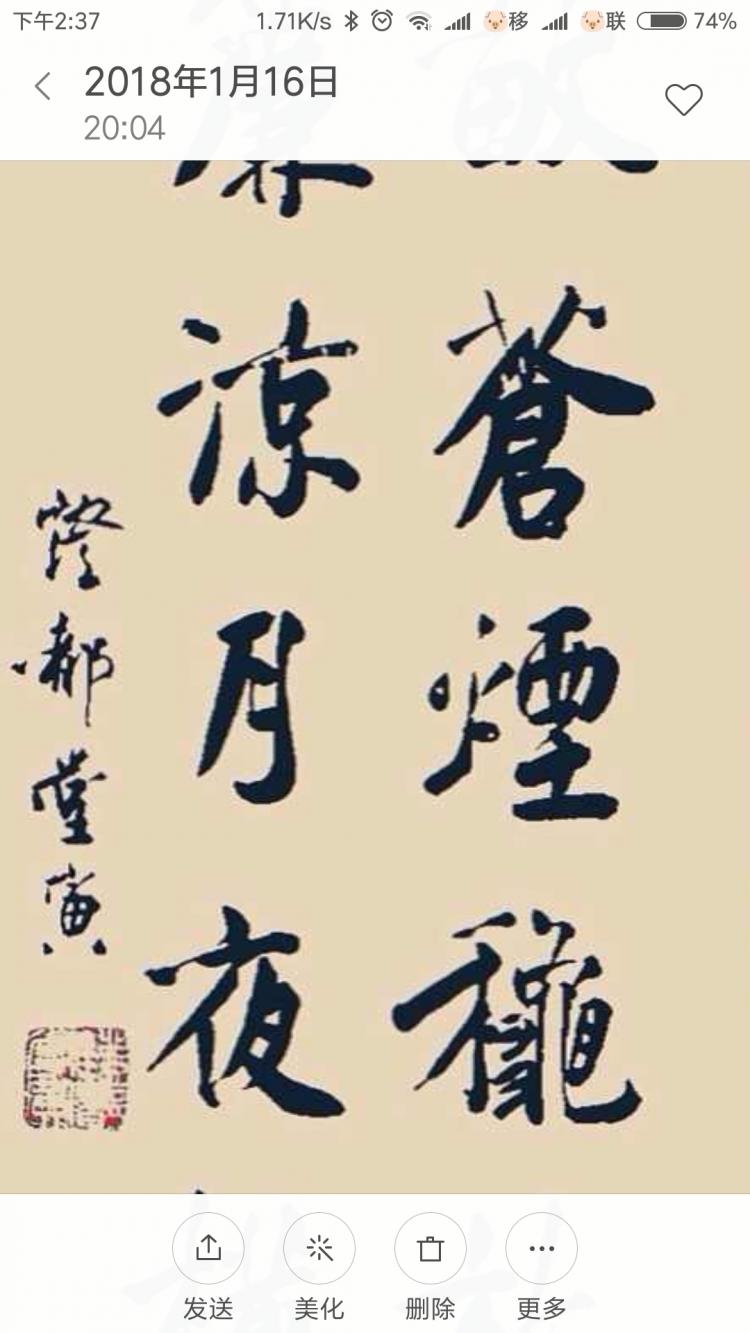 下午2:37 1.71K/s 移 联 74%
2018年1月16日
20:04
蒼煙龝
涼月夜
堂寅
发送 美化 删除 更多